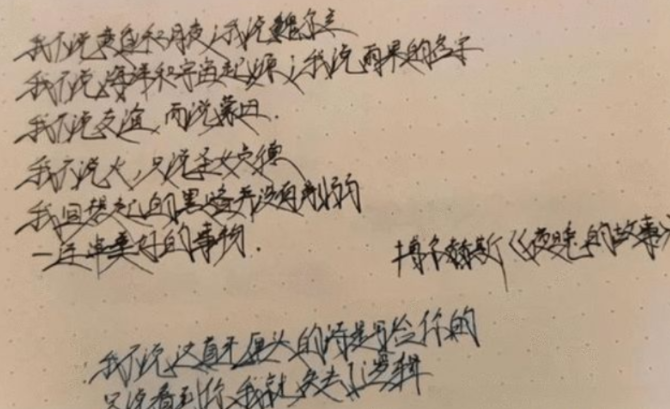 我不说爱和月夜;我说魏尔兰
我不说海洋和宇宙起源;我说雨果的名字
我不说友谊,而说蒙田.
我不说火,只说圣女贞德
我回想起的黑暗并没有削弱
一连串美好的事物.
博尔赫斯《夜晚的故事》
我不说,这真无厘头的诗是写给你的
只说看到你,我就失去了逻辑